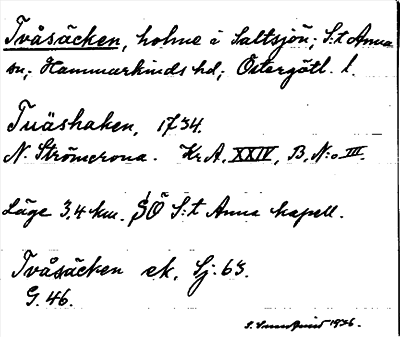 Tvåsäcken, holme i Saltsjön; S:t Anna
sn; Hammarkinds hd; Östergötl. l.
Tuäshaken, 1734.
N. Strömcrona. Kr.A. XXIV, B, N:o III.
Läge 3,4 km. SÖ S:t Anna kapell.
Tvåsäcken ek. Sj. 63.
G. 46.
1926.